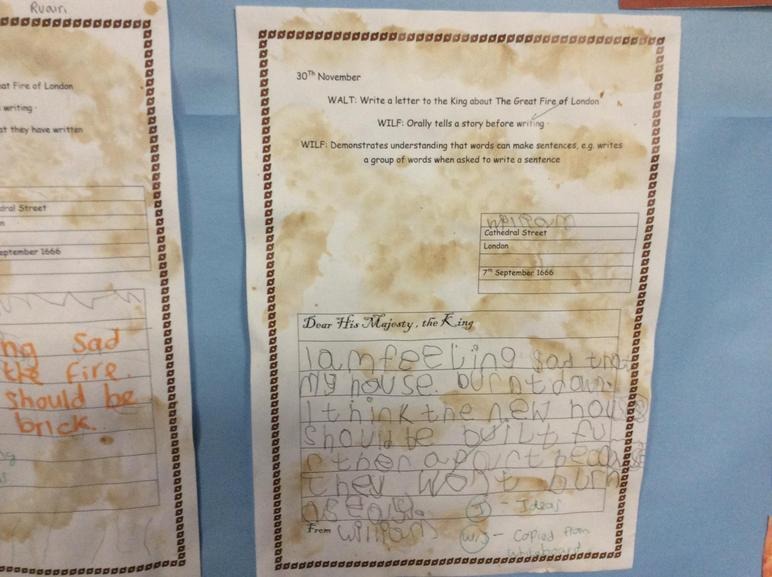 Ruairi
at Fire of London
writing
at they have written
dral Street
n
eptember 1666
ng Sad
the fire.
should be
brick.
30Th November
WALT: Write a letter to the King about The Great Fire of London
WILF: Orally tells a story before writing
WILF: Demonstrates understanding that words can make sentences, e.g. writes
a group of words when asked to write a sentence
William
Cathedral Street
London
7th September 1666
Dear His Majesty, the King
I am feeling sad that
my house. burnt down.
I think the new hous
should be built fu
rther apart becaus
they wont burn
as easily.
I - Ideas
From William
W/S - Copied from
whiteboard